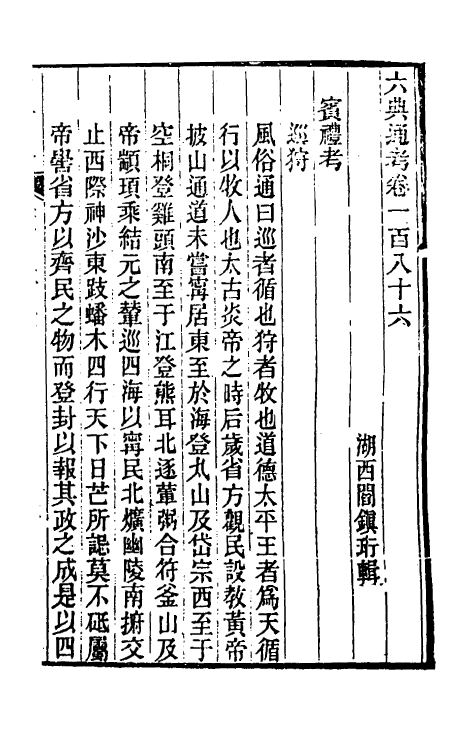 六典通考卷一百八十六
湖西閻鎮珩輯
賓禮考
巡狩
風俗通曰巡者循也狩者牧也道德太平王者為天循
行以牧人也太古炎帝之時后歲省方觀民設教黃帝
披山通道未嘗寧居東至於海登丸山及岱宗西至于
空桐登雞頭南至于江登熊耳北逐葷粥合符釜山及
帝顓頊乘結元之輦巡四海以寧民北爌幽陵南掮交
止西際神沙東跂蟠木四行天下日芒所諟莫不砥屬
帝嚳省方以齊民之物而登封以報其政之成是以四